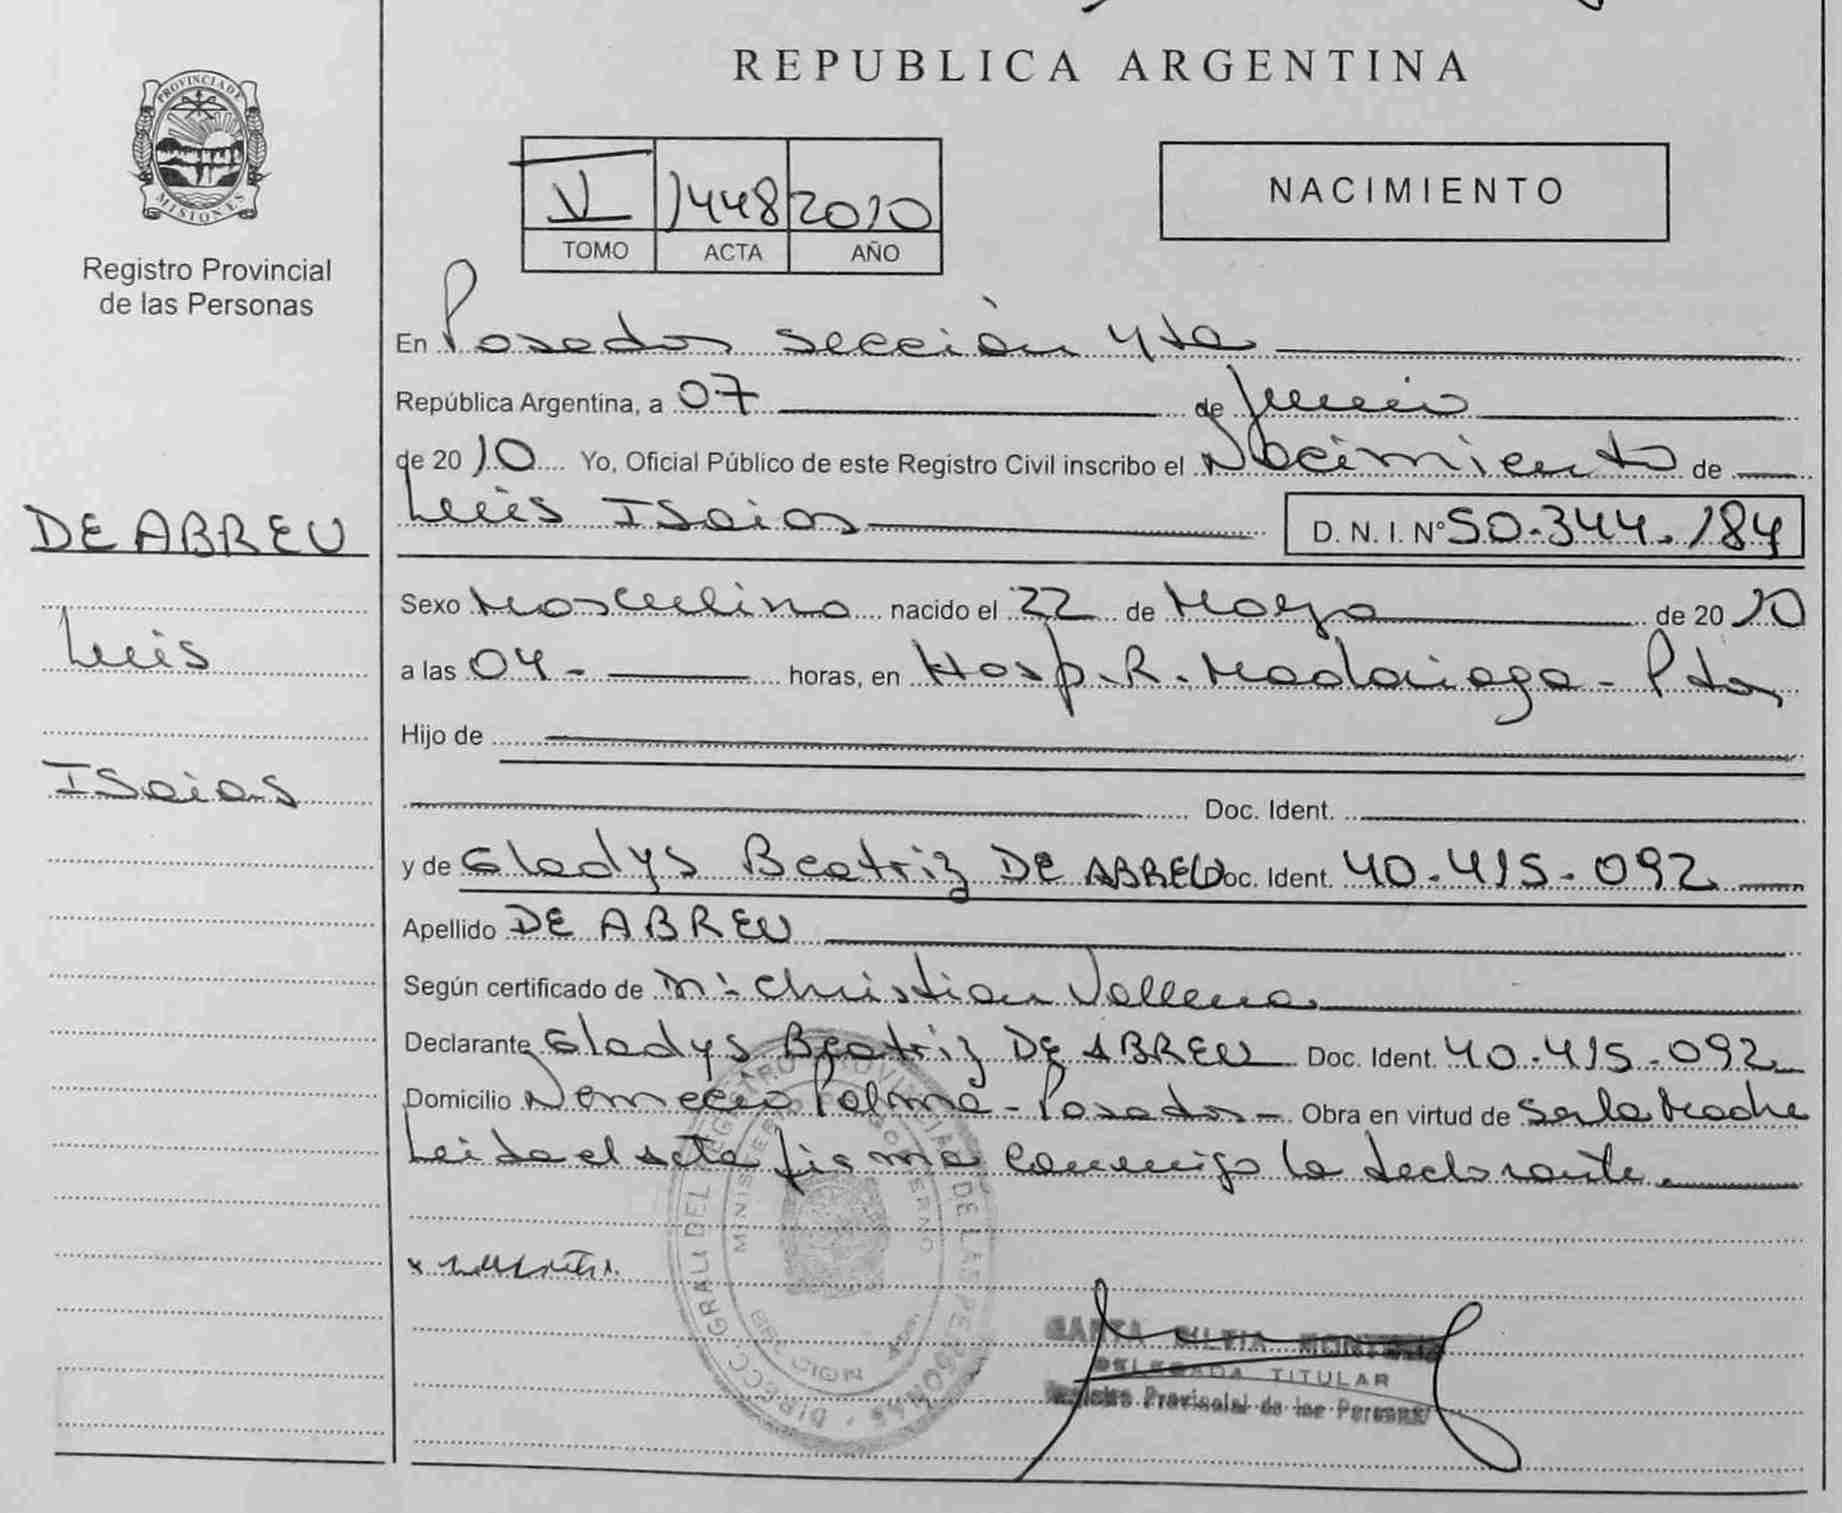 REPUBLICA ARGENTINA
PROVINCIA DE
MISIONES
Registro Provincial
de las Personas
V 1448 2010
TOMO ACTA AÑO
NACIMIENTO
En Posadas sección 4ta
República Argentina, a 07 de Junio
de 2010 Yo, Oficial Público de este Registro Civil inscribo el Nacimiento de
DE ABREU
Luis Isaias D. N. I. Nº 50.344.184
Sexo Masculino nacido el 22 de Mayo de 2010
Luis
a las 04 - horas, en Hosp. R. Madariaga - Pdas
Hijo de
Isaias
Doc. Ident.
y de Gladys Beatriz DE ABREU Doc. Ident. 40.415.092
Apellido DE ABREU
Según certificado de Christian Vallena
Declarante Gladys Beatriz DE ABREU Doc. Ident. 40.415.092
Domicilio Palma - Posadas - Obra en virtud de Ser la Madre
Leida el acta firma conmigo la declarante.
DIRECC. GRAL DEL REGISTRO PROVINCIAL DE LAS PERSONAS
MINISTERIO GOBIERNO
SILVIA
DELEGADA TITULAR
Registro Provincial de las Personas